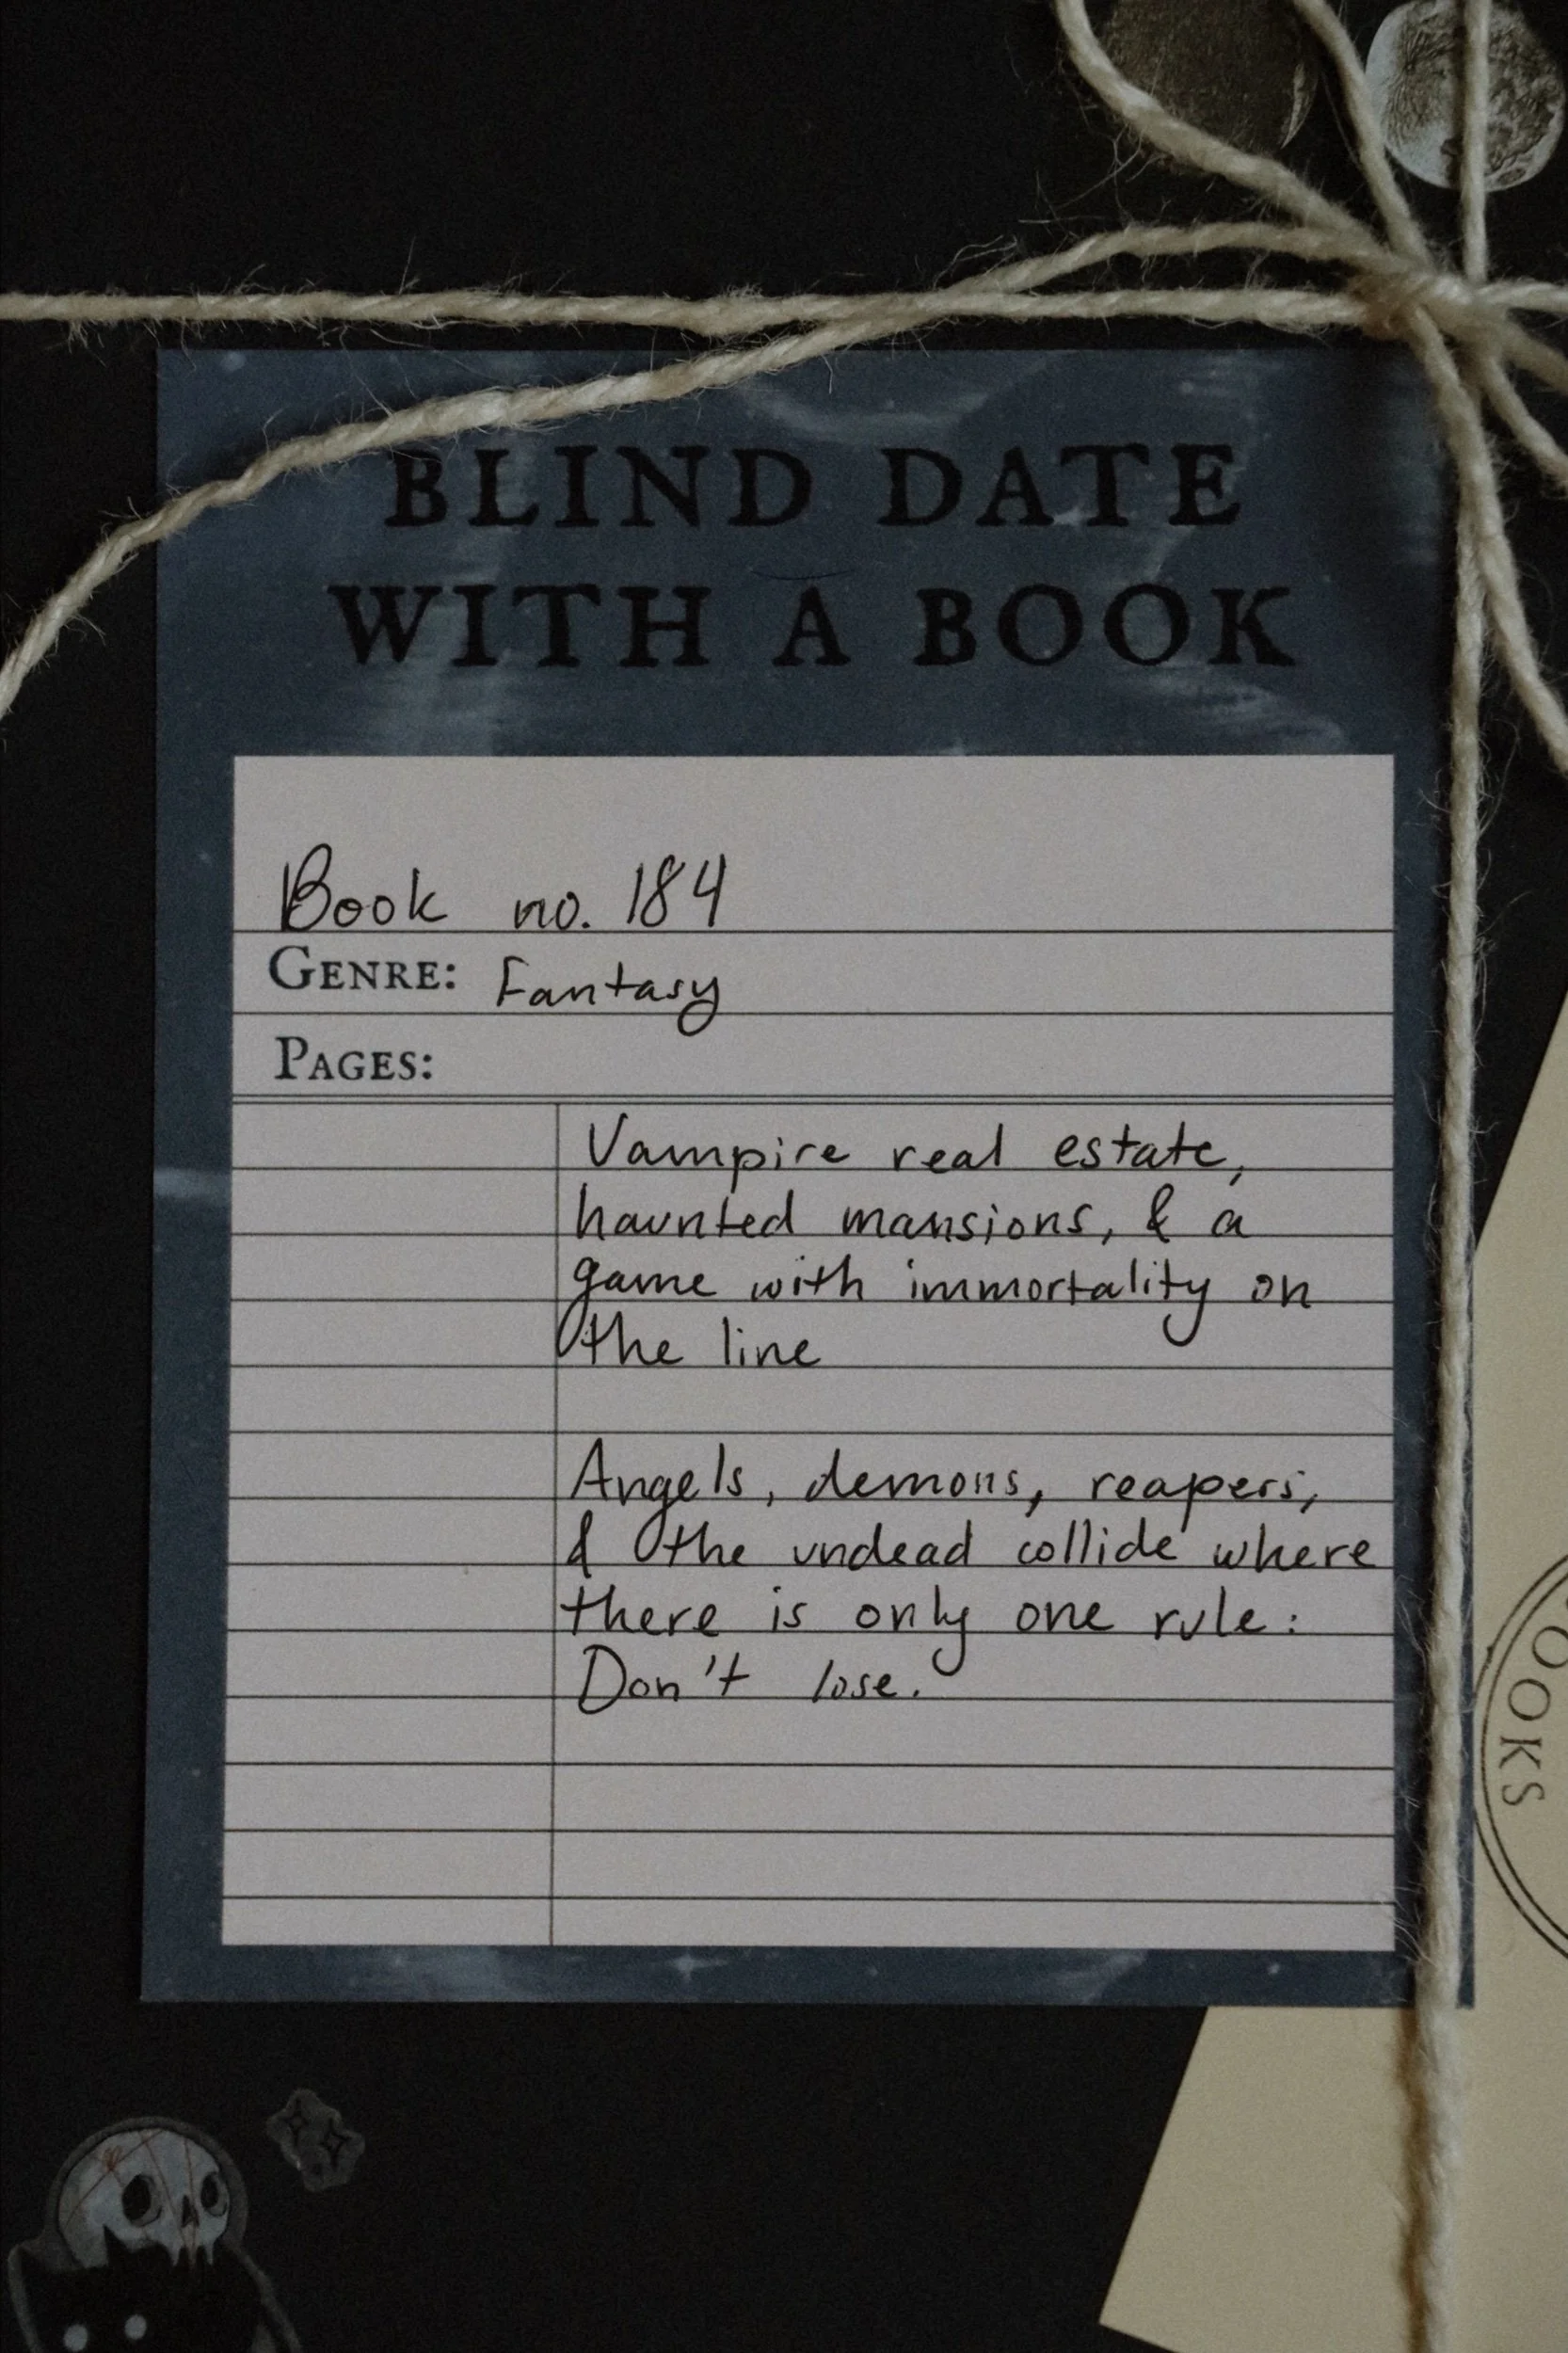 BLIND DATE
WITH A BOOK
Book no. 184
GENRE: Fantasy
PAGES:
Vampire real estate,
haunted mansions, & a
game with immortality on
the line
Angels, demons, reapers,
& the undead collide where
there is only one rule:
Don't lose.
OOKS